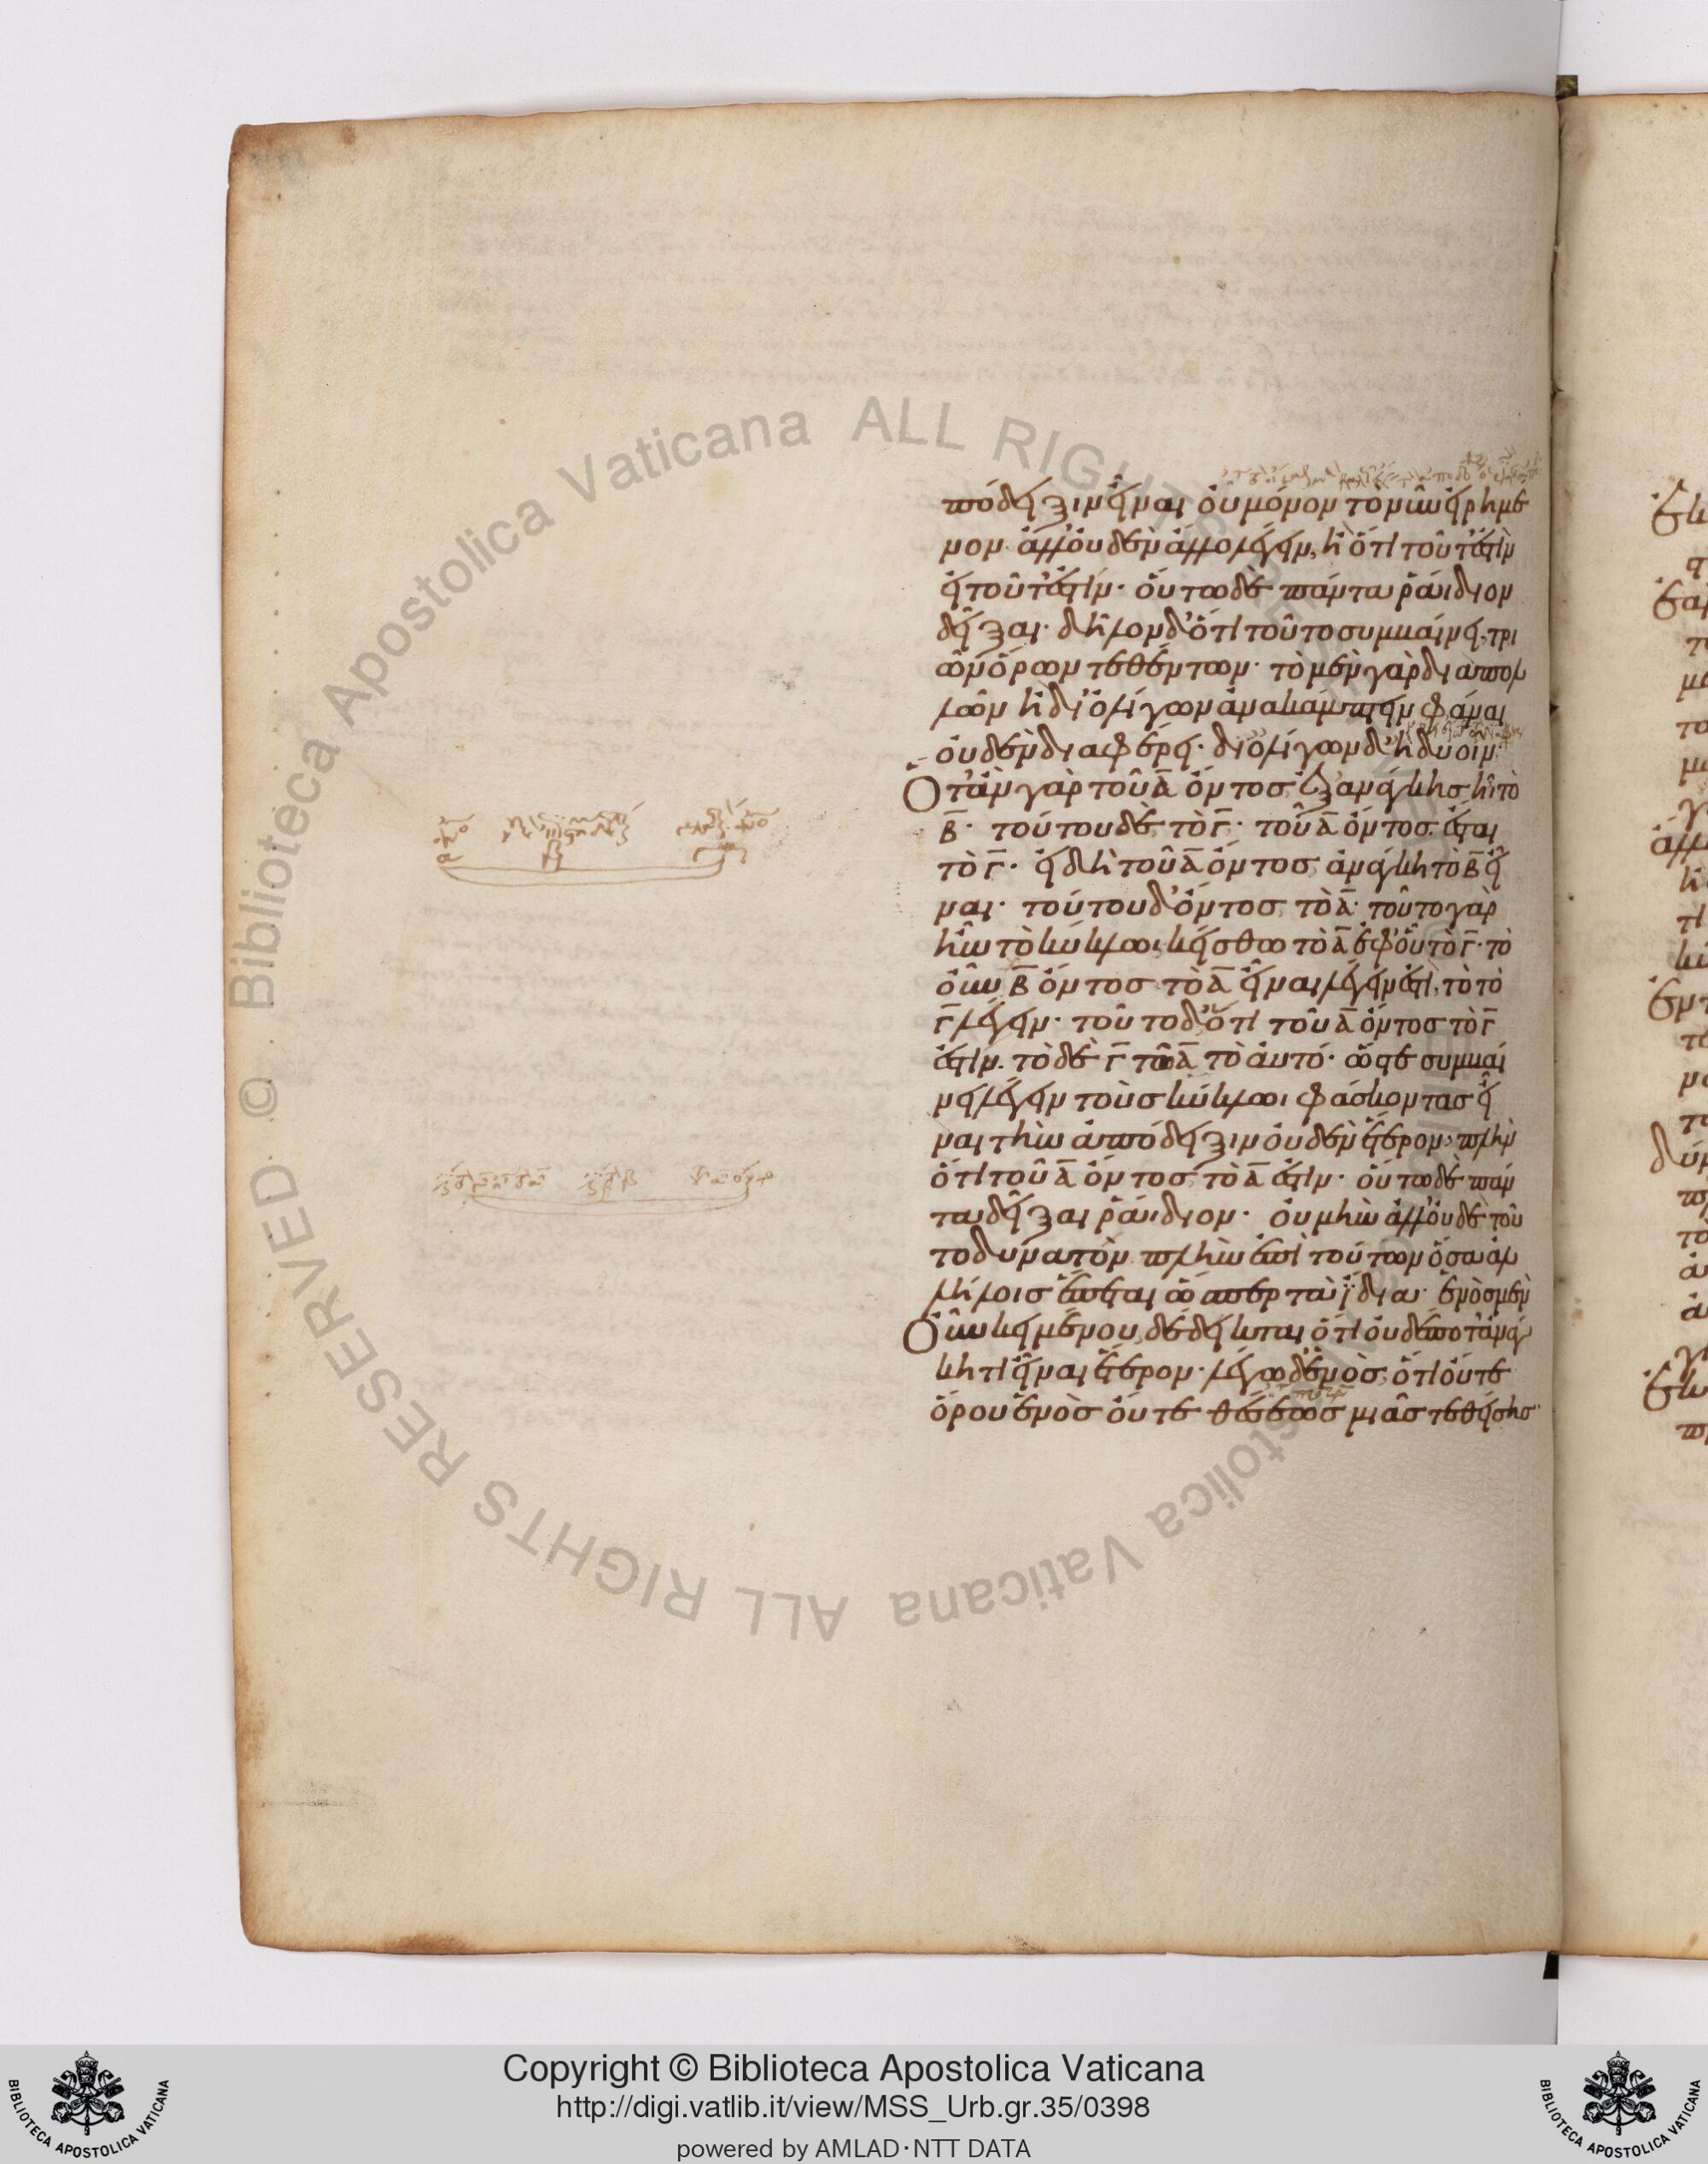 πόδειξιν εἶναι οὐ μόνον τὸ νῦν εἰρημέ
νον. ἀλλ' οὐδὲν ἄλλο λέγειν, ἢ ὅτι τοῦτ' ἔστιν
εἰ τοῦτ' ἔστιν· οὕτω δὲ πάντα ῥάιδιον
δεῖξαι· δῆλον δ' ὅτι τοῦτο συμβαίνει, τρι
ῶν ὅρων τεθέντων· τὸ μὲν γὰρ διὰ πολ
λῶν ἢ δι' ὀλίγων ἀνακάμπτειν φάναι
οὐδὲν διαφέρει· δι' ὀλίγων δ' ἢ δυοῖν·
Ὅταν γὰρ τοῦ Α ὄντος ἐξ ἀνάγκης ἦι τὸ
Β· τούτου δὲ τὸ Γ· τοῦ Α ὄντος ἔσται
τὸ Γ· εἰ δὴ τοῦ Α ὄντος ἀνάγκη τὸ Β εἶ
ναι· τούτου δ' ὄντος τὸ Α· τοῦτο γὰρ
ἦν τὸ κύκλωι· κείσθω τὸ Α ἐφ' οὗ τὸ Γ· τὸ
οὖν Β ὄντος τὸ Α εἶναι λέγειν ἐστὶ, τὸ τὸ
Γ λέγειν· τοῦτο δ' ὅτι τοῦ Α ὄντος τὸ Γ
ἐστίν. τὸ δὲ Γ τῶ Α τὸ αὐτό· ὥστε συμβαί
νει λέγειν τοὺς κύκλωι φάσκοντας εἶ
ναι τὴν ἀπόδειξιν οὐδὲν ἕτερον, πλὴν
ὅτι τοῦ Α ὄντος τὸ Α ἐστίν· οὕτω δὲ πάν
τα δεῖξαι ῥάιδιον· οὐ μὴν ἀλλ' οὐδὲ τοῦ
το δυνατὸν πλὴν ἐπὶ τούτων ὅσα ἀλ
λήλοις ἕπεται ὥσπερ τὰ ἴδια· ἑνὸς μὲν
Οὖν κειμένου, δέδεικται ὅτι οὐδέποτ' ἀνάγ
κη τὶ εἶναι ἕτερον· λέγω δ' ἑνὸς, ὅτι οὔτε
ὅρου ἑνὸς οὔτε θέσεως μιᾶς τεθείσης·
Copyright © Biblioteca Apostolica Vaticana
http://digi.vatlib.it/view/MSS_Urb.gr.35/0398
powered by AMLAD·NTT DATA